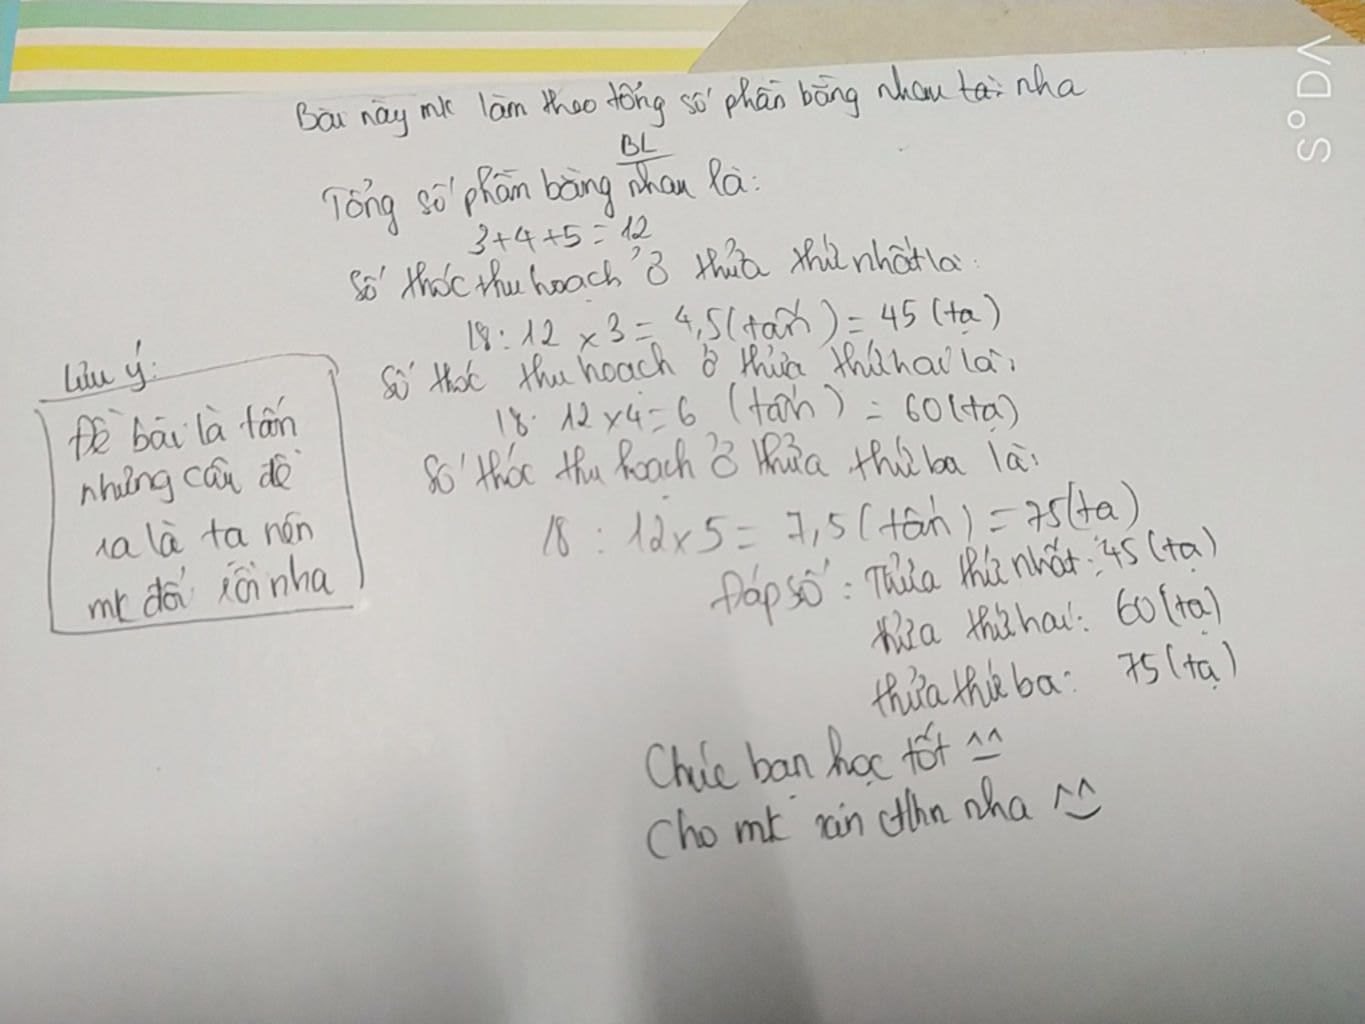 Bài này mk làm theo tổng số phần bằng nhau tại nha
BL
Tổng số phần bằng nhau là:
3+4+5=12
Số thóc thu hoạch ở thửa thứ nhất là:
18:12 x 3 = 4,5 (tấn) = 45 (tạ)
Số thóc thu hoạch ở thửa thứ hai là:
18:12 x 4 = 6 (tấn) = 60 (tạ)
Số thóc thu hoạch ở thửa thứ ba là:
18:12 x 5 = 7,5 (tấn) = 75 (tạ)
Đáp số: Thửa thứ nhất: 45 (tạ)
thửa thứ hai: 60 (tạ)
thửa thứ ba: 75 (tạ)
Chúc bạn học tốt ^^
Cho mk xin ctlhn nha ^^
Lưu ý:
Đề bài là tấn
nhưng câu đề
ra là tạ nên
mk đổi rồi nha
VD°S